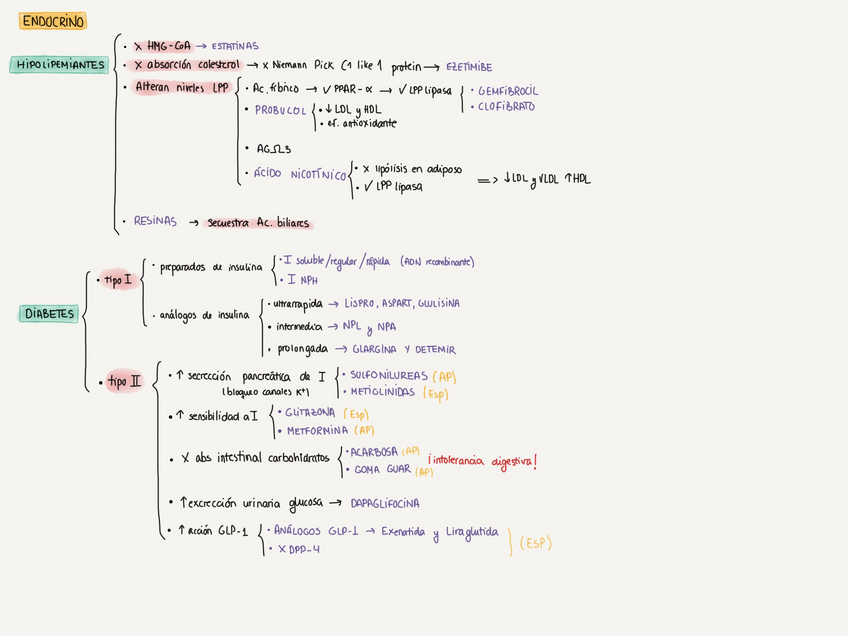 ENDOCRINO
HIPOLIPEMIANTES
• X HMG-CoA → ESTATINAS
• X absorción colesterol → x Niemann Pick C1 like 1 protein → EZETIMIBE
• Alteran niveles LPP
• Ac. fíbrico → ✓ PPAR-α → ✓ LPP lipasa
• GEMFIBROCIL
• CLOFIBRATO
• PROBUCOL
• ↓ LDL y HDL
• ef. antioxidante
• AGΩ3
• ÁCIDO NICOTÍNICO
• X lipólisis en adiposo
• ✓ LPP lipasa
=> ↓LDL y VLDL ↑HDL
• RESINAS → secuestra Ac. biliares
DIABETES
• tipo I
• preparados de insulina
• I soluble/regular/rápida (ADN recombinante)
• I NPH
• análogos de insulina
• ultrarrapida → LISPRO, ASPART, GLULISINA
• intermedia → NPL y NPA
• prolongada → GLARGINA Y DETEMIR
• tipo II
• ↑ secrección pancreática de I
(bloqueo canales K+)
• SULFONILUREAS (AP)
• METIGLINIDAS (Esp)
• ↑ sensibilidad a I
• GLITAZONA (Esp)
• METFORMINA (AP)
• X abs intestinal carbohidratos
• ACARBOSA (AP)
• GOMA GUAR (AP)
¡intolerancia digestiva!
• ↑excrección urinaria glucosa → DAPAGLIFOCINA
• ↑ acción GLP-1
• ANÁLOGOS GLP-1 → Exenatida y Liraglutida
• X DPP-4
(ESP)